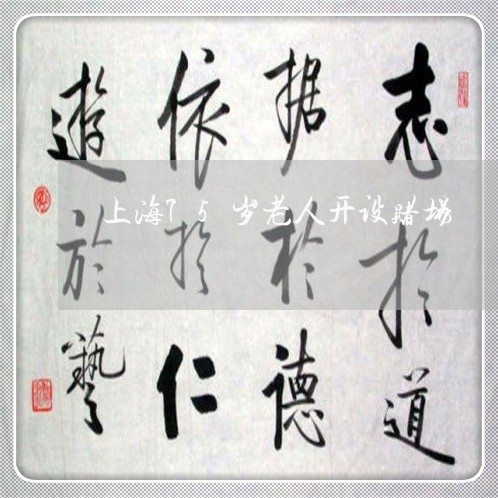 志於道
据於德
依於仁
遊於藝
上海75岁老人开设赌场